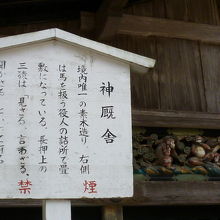 神厩舎
境内唯一の素木造り、右側
は馬を扱う役人の詰所で畳
敷になっている。長押上の
三猿は「見ざる、言わざる、
禁煙